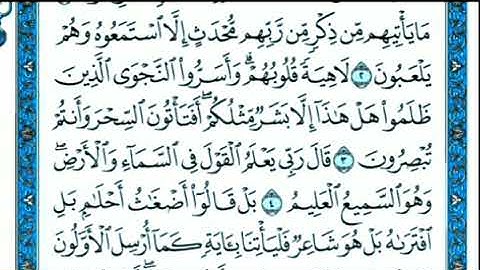 مَا يَأْتِيهِم مِّن ذِكْرٍ مِّن رَّبِّهِم مُّحْدَثٍ إِلَّا ٱسْتَمَعُوهُ وَهُمْ
يَلْعَبُونَ ٢ لَاهِيَةً قُلُوبُهُمْ ۗ وَأَسَرُّوا۟ ٱلنَّجْوَى ٱلَّذِينَ
ظَلَمُوا۟ هَلْ هَٰذَآ إِلَّا بَشَرٌ مِّثْلُكُمْ ۖ أَفَتَأْتُونَ ٱلسِّحْرَ وَأَنتُمْ
تُبْصِرُونَ ٣ قَالَ رَبِّى يَعْلَمُ ٱلْقَوْلَ فِى ٱلسَّمَآءِ وَٱلْأَرْضِ ۖ
وَهُوَ ٱلسَّمِيعُ ٱلْعَلِيمُ ٤ بَلْ قَالُوٓا۟ أَضْغَٰثُ أَحْلَٰمٍۭ بَلِ
ٱفْتَرَىٰهُ بَلْ هُوَ شَاعِرٌ فَلْيَأْتِنَا بِـَٔايَةٍ كَمَآ أُرْسِلَ ٱلْأَوَّلُونَ